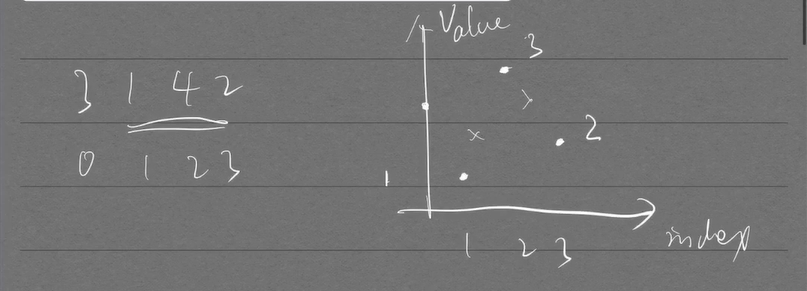 3 1 4 2
0 1 2 3
Value
3
2
1
1 2 3
index